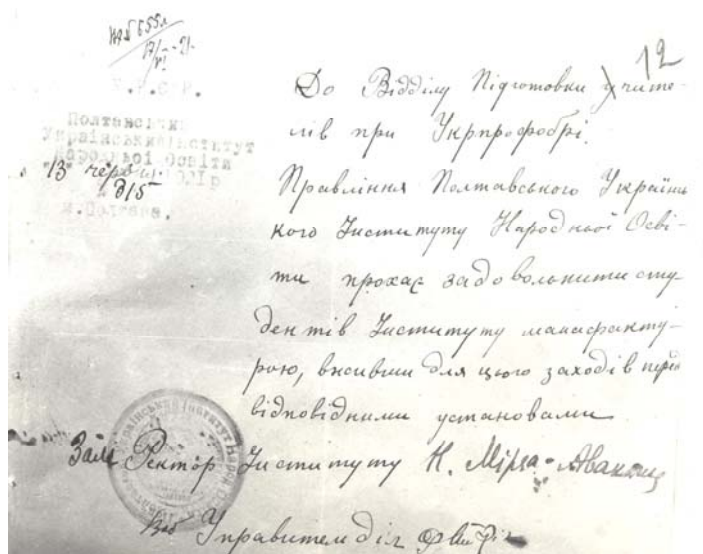 12
У.С.С.Р.
Полтавський
Український Інститут
Народньої Освіти
"13" червня 1921р
№ 815
м.Полтава.
До Відділу Підготовки Учите-
лів при Укрпрофобрі.
Правління Полтавського Українсь
кого Інституту Народньої Осві-
ти прохає задовольнити сту-
дентів Інституту мануфакту-
рою, вживши для цього заходів перед
відповідними установами
Зам Ректор Інституту Н. Мірза-Авакянц
Управител діл